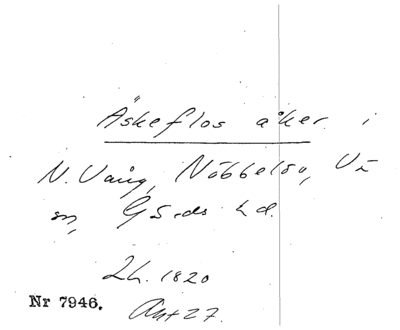 Äskeflos åker i
N. Vång, Nöbbelöv, Vä
sn, Gärds hd.
Lh. 1820
Akt 27.
Nr 7946.